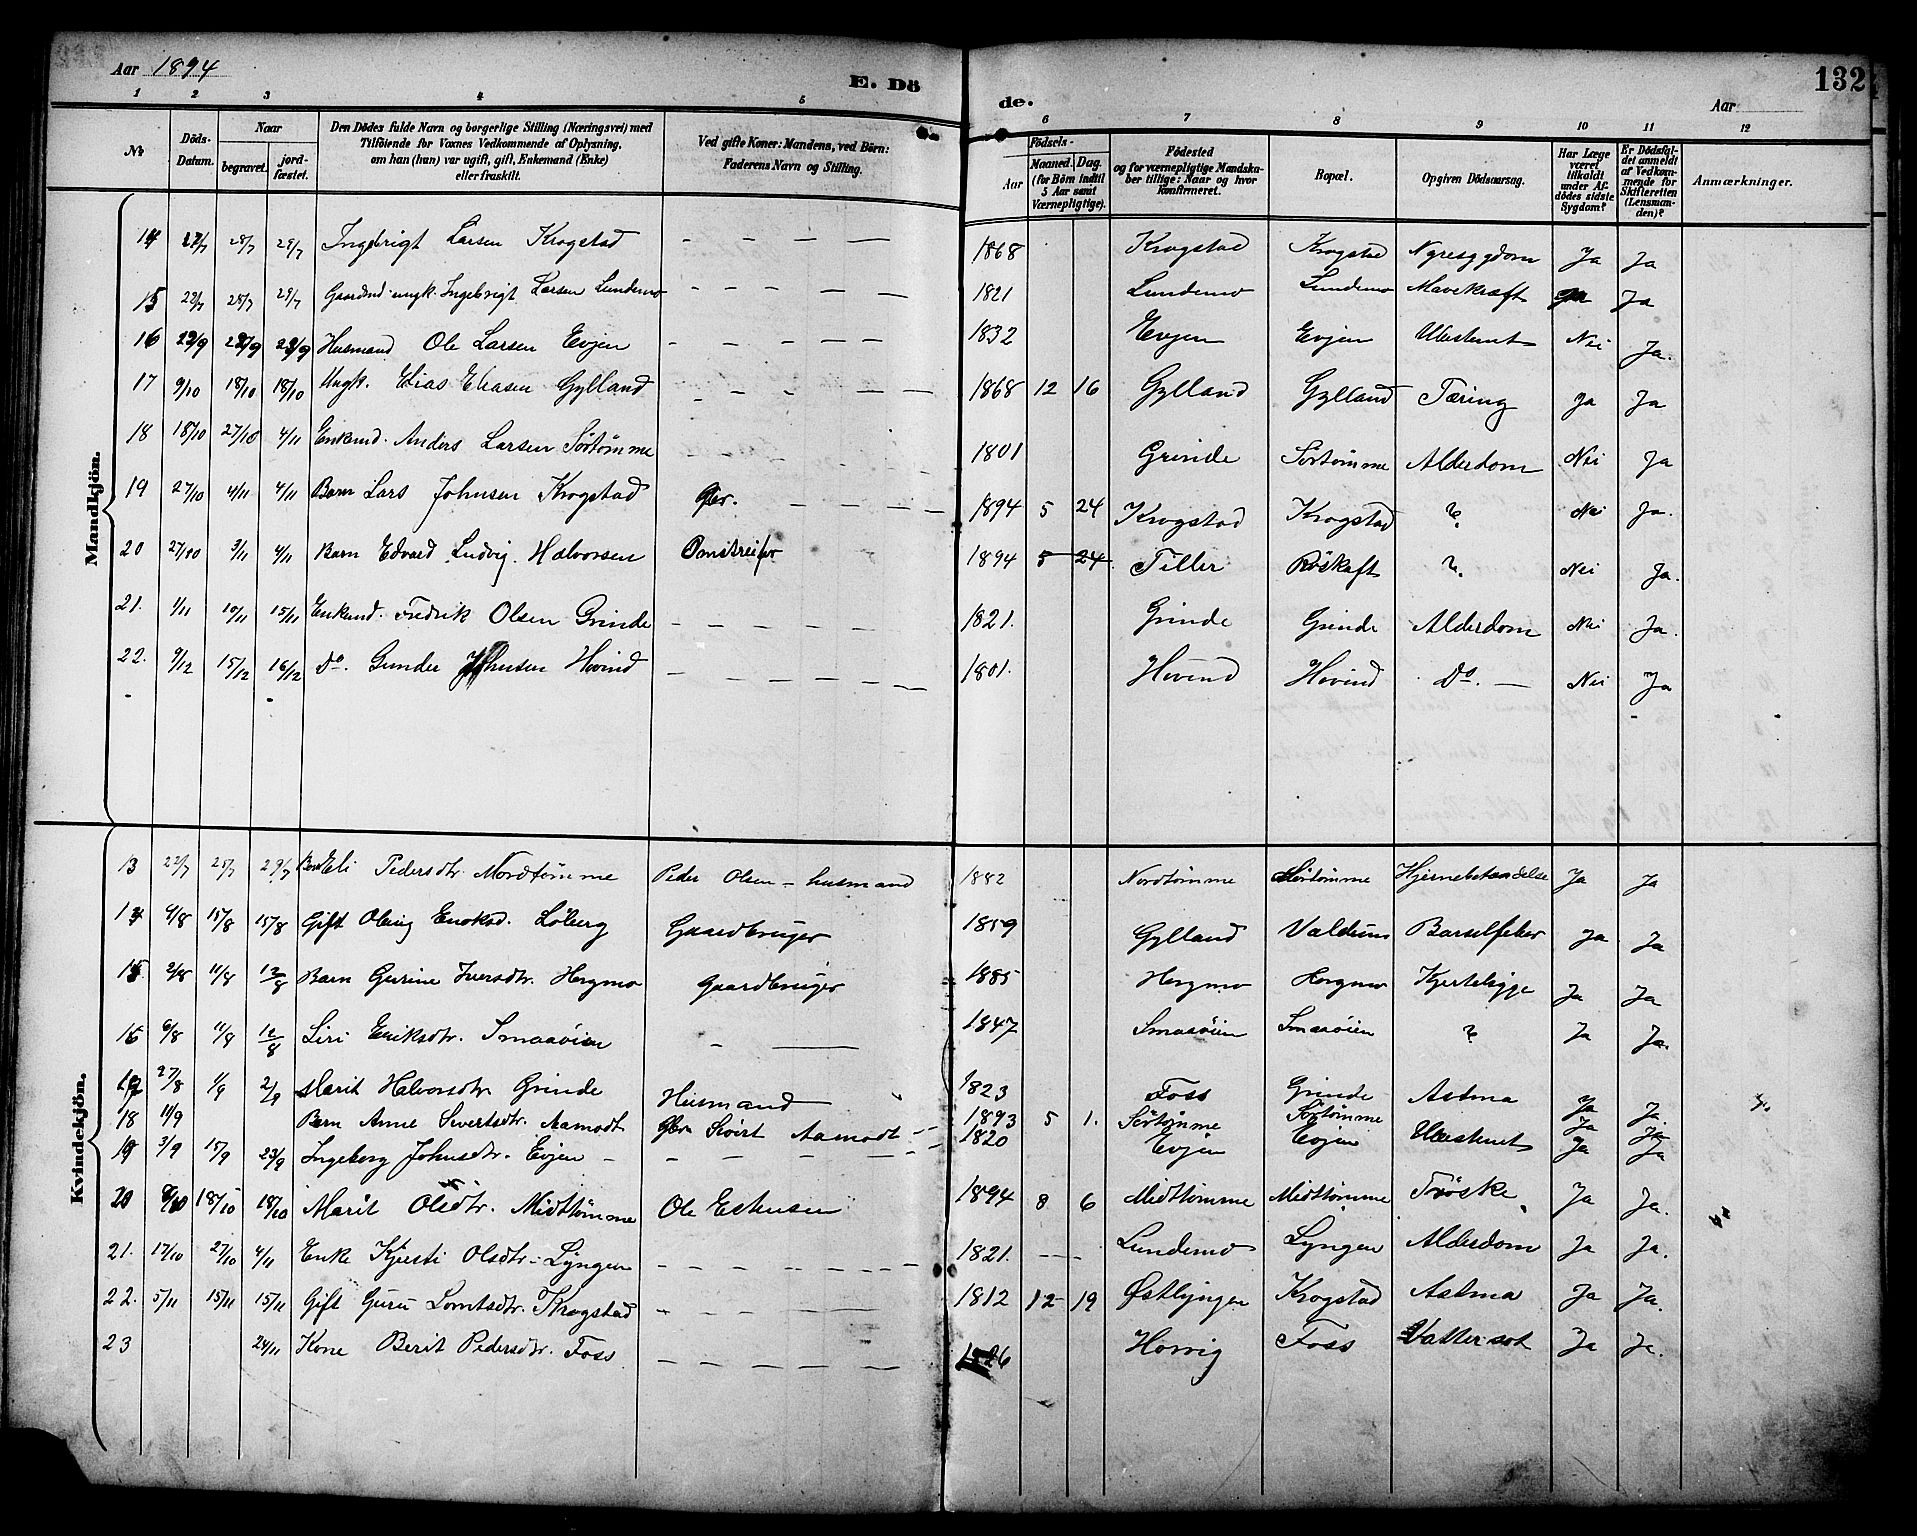 Aar 1894
E. Dö
de.
Aar
132
1 2 3 4 5 6 7 8 9 10 11 12
No
Döds-Datum.
Naar
begravet.
jord-fæstet.
Den Dödes fulde Navn og borgerlige Stilling (Næringsvei) med
Tilföiende for Voxnes Vedkommende af Oplysning,
om han (hun) var ugift, gift, Enkemand (Enke)
eller fraskilt.
Ved gifte Koner: Mandens, ved Börn:
Faderens Navn og Stilling.
Födsels-
Aar
Maaned. Dag.
(for Börn indtil
5 Aar samt
Værnepligtige).
Födested
og for værnepligtige Mandska-
ber tillige: Naar og hvor
konfirmeret.
Bopæl.
Opgiven Dödsaarsag.
Har Læge
været
tilkaldt
under Af-
dödes sidste
Sygdom?
Er Dödsfal-
det anmeldt
af Vedkom-
mende for
Skifteretten
(Lensman-
den)?
Anmærkninger.
Mandkjön.
14 22/7 28/7 29/7 Ingebrigt Larsen Krogstad — — — — 1868 Krogstad Krogstad Nyresygdom Ja Ja
15 22/7 28/7 29/7 Ingebrigt Larsen Lundemo — — — — 1821 Lundemo Lundemo Mavekræft Ja Ja
16 Husmand Ole Larsen Evjen — — — — 1832 Evjen Evjen Nei Ja.
17 9/10 18/10 18/10 Ungk. Elias Eliasen Gylland — — — — 1868 12 16 Gylland Gylland Tæring Ja Ja
18 18/10 27/10 4/11 Enkemd. Anders Larsen Sörtömme — — — — 1801 Grinde Sörtömme Alderdom Nei Ja
19 27/10 4/11 4/11 Barn Lars Johnsen Krogstad Gbr. — — — 1894 5 24 Krogstad Krogstad ? Nei Ja.
20 27/10 3/11 4/11 Barn Edvard Ludvig Halvorsen Omstreifer 1894 5 24 Tiller Röskaft ? Nei Ja.
21. 1/11 10/11 15/11 Enkemd. Fredrik Olsen Grinde — — — — 1821. Grinde Grinde Alderdom Nei Ja.
22. 9/12 15/12 16/12 Do. Gunder Johnsen Hovind — — — — 1801. Hovind Hovind Do. — Nei Ja
Kvindekjön.
13 22/7 25/7 29/7 Barn Eli Pedersdtr. Nordtömme Peder Olsen – husmand 1882 Nordtömme Sörtömme Hjernebetændelse Ja Ja
14 15/8 15/8 Gift Oleug Enoksd. Löberg Gaardbruger 1859 Gylland Valdum Barselfeber Ja Ja
15 2/8 11/8 12/8 Barn Gurine Iversdtr. Hergmo Gaardbruger 1885 Hergmo Hergmo Ja Ja
6/8 11/8 12/8 Siri Eriksdtr. Smaaöien – — 1847 Smaaöien Smaaöien ? Ja Ja.
17 27/8 1/9 2/9 Marit Halvorsdtr Grinde Husmand 1823 Foss Grinde Astma Ja Ja
18 11/9 Barn Anne Sivertsdtr. Aamodt. Gbr Sivert Aamodt 1893 5 1. Sörtömme Sörtömme Ja Ja
19 3/9 15/9 23/9 Ingeborg Johnsdtr. Evjen — — — — 1820 Evjen Evjen Ja Ja
20 18/10 18/10 Marit Olsdtr. Midttömme Ole Estensen 1894 8 6 Midttömme Midttömme Tröske Ja Ja.
21. 17/10 27/10 4/11 Enke Kjersti Olsdtr. Lyngen — — — — 1821. — — Lundemo Lyngen Alderdom Ja Ja.
22. 5/11 15/11 15/11 Gift Guru Lorntsdtr. Krogstad — — — — 1812 12 19 Östlyngen Krogstad Astma Ja Ja.
23 24/11 Kone Berit Pedersdtr. Foss — — — — Horvig Foss Vattersot Ja Ja.